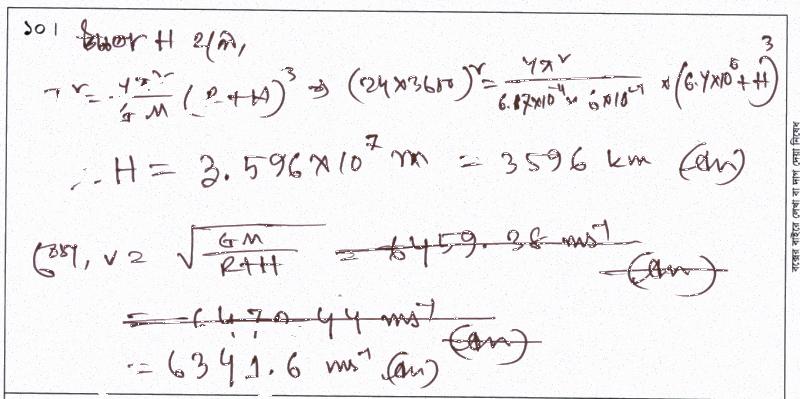 ১০।
H হলে,
T² = 4π²/GM (R+H)³ ⇒ (24×3600)² = 4π²/(6.67×10⁻¹¹ × 6×10²⁴) × (6.4×10⁶+H)³
∴ H = 3.596×10⁷ m = 3596 km (Ans)
বেগ, v = √(GM/(R+H)) = 6459.38 ms⁻¹ (Ans)
ms⁻¹ (Ans)
= 6341.6 ms⁻¹ (Ans)
বক্সের বাইরে লেখা বা দাগ দেয়া নিষেধ